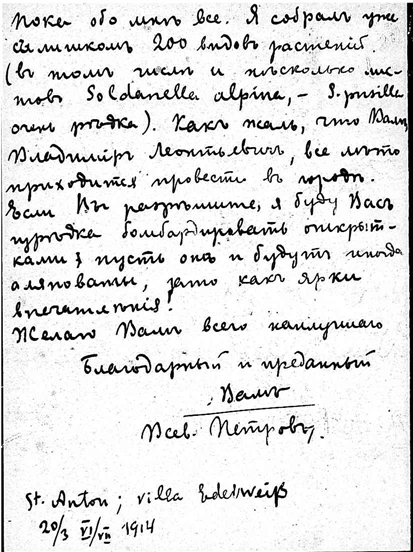 пока обо мнѣ все. Я собралъ уже
съ лишкомъ 200 видовъ растенiй
(въ томъ числѣ и нѣсколько лис-
товъ Soldanella alpina, – S. pusilla
очень рѣдка). Какъ жаль, что Вамъ,
Владимiръ Леонтьевичъ, все лѣто
приходится провести въ городѣ.
Если Вы разрѣшите, я буду Васъ
изрѣдка бомбардировать открыт-
ками; пусть онѣ и будутъ иногда
аляповаты, зато какъ ярки
впечатлѣнiя!
Желаю Вамъ всего наилучшаго
Благодарный и преданный
Вамъ
Всев. Петровъ.
St. Anton; villa Edelweiß
20/3 VI/VII 1914